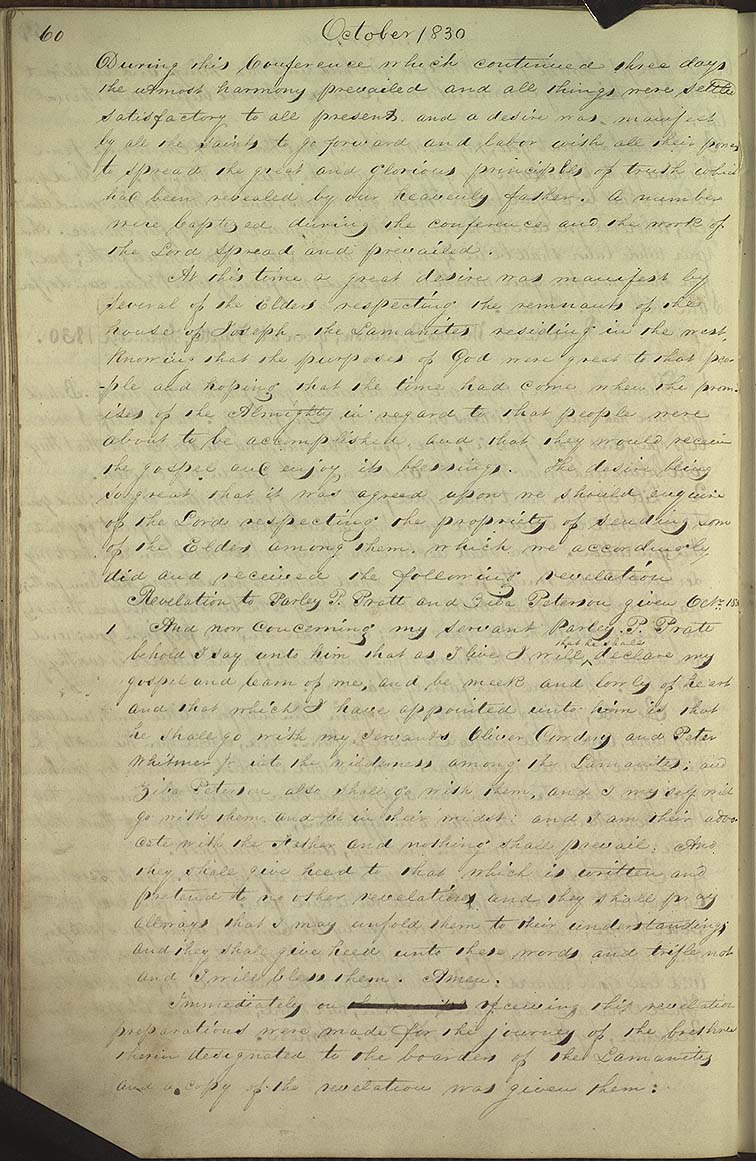 60 October 1830
During this Conference which continued three days
the utmost harmony prevailed and all things were settled
satisfactory to all present. and a desire was manifest
by all the saints to go forward and labor with all their powers
to spread the great and glorious principles of truth which
had been revealed by our heavenly father. A number
were baptized during the conference and the work of
the Lord spread and prevailed.
At this time a great desire was manifest by
several of the Elders respecting the remnants of the
house of Joseph - the Lamanites residing in the west,
knowing that the purposes of God were great to that peo-
-ple and hoping that the time had come when the prom-
ises of the Almighty in regard to that people were
about to be accomplished, and that they would receive
the gospel and enjoy its blessings. The desire being
so great that it was agreed upon we should enquire
of the Lord respecting the propriety of sending some
of the Elders among them, which we accordingly
did and received the following revelation
Revelation to Parley P. Pratt and Ziba Peterson given Octr. 183
1 And now concerning my servant Parley P. Pratt
behold I say unto him that as I live I will that he shall declare my
gospel and learn of me, and be meek and lowly of heart
and that which I have appointed unto him is that
he shall go with my servants Oliver Cowdery and Peter
Whitmer jr into the wilderness among the Lamanites; and
Ziba Peterson also shall go with them, and I myself will
go with them and be in their midst: and I am their advo-
cate with the Father and nothing shall prevail: And
they shall give heed to that which is written and
pretend to no other revelations and they shall pray
allways that I may unfold them to their understanding;
and they shall give heed unto these words and trifle not
and I will bless them. Amen.
Immediately on receiving this revelation
preparations were made for the journey of the brethren
therein designated to the boarders of the Lamanites
and a copy of the revelation was given them: